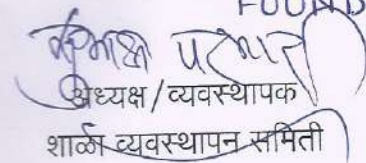 FOUND
अध्यक्ष/व्यवस्थापक
शाळा व्यवस्थापन समिती